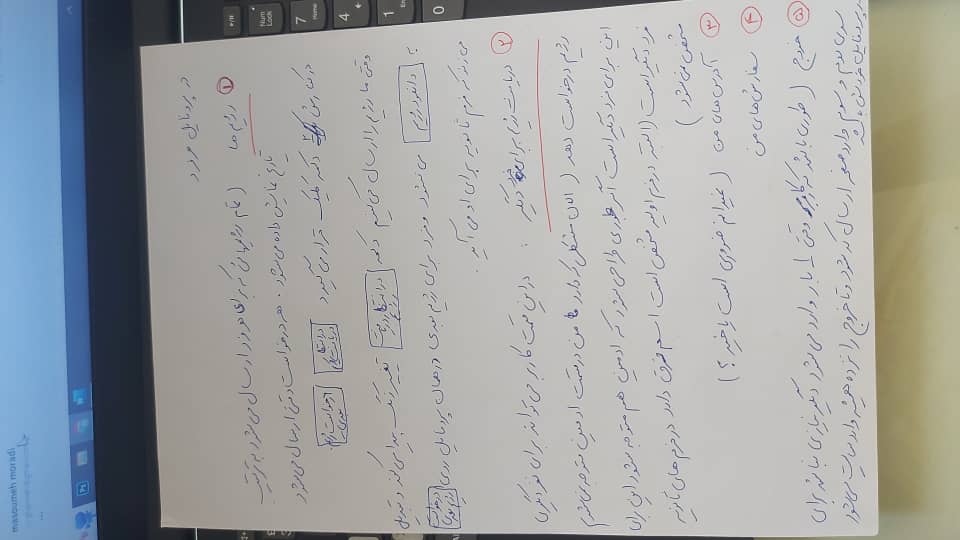 masoumeh moradi
در پروفایل هر فرد
① رژیم ها ( تمام رژیمهایی که برای هر فرد ارسال می شود به ترتیب
تاریخ نمایش داده می شود . هر درخواست وقتی ارسال می شود
در کنارش ۲ دکمه کلیک قرار می گیرد در انتظار دریافت رژیم درخواست رژیم بعدی
وقتی ما رژیم را ارسال می کنیم دکمه در انتظار دریافت رژیم تغییر رنگ پیدا می کند و تبدیل
به دانلود رژیم می شود و فرد برای رژیم بعدی در همان پروفایل روی درخواست رژیم بعدی
می زند که فرم ثانویه برای او می آید .
② دریافت رژیم برای فرد دیگر : در این قسمت کاربر می تواند برای نفر دیگری
رژیم درخواست دهد ( الان مشکلی که دارد من در قسمت ادمین متوجه نمی شوم
این برای فرد دیگر است اگر طوری طراحی بشود که ادمین هم متوجه بشود این برای
فرد دیگر است ( البته در فرم اولیه مشخص است اسم فرق دارد در فرم های ثانویه
مشخص نمی شود )
③ آدرس های من ( نمیدانم ضروری است یا خیر ؟ )
④ سفارش های من
⑤ خروج ( طوری باشد که کاربر وقتی ۱ بار وارد می شود دیگر نیازی نباشد برای
سری دوم و سوم وارد صفحه ارسال کد شود و تا خروج را نزده همیشه وارد سایت می شود
در پروفایل خودش باشد
Num
Lock
7
Home
4
1
En
0